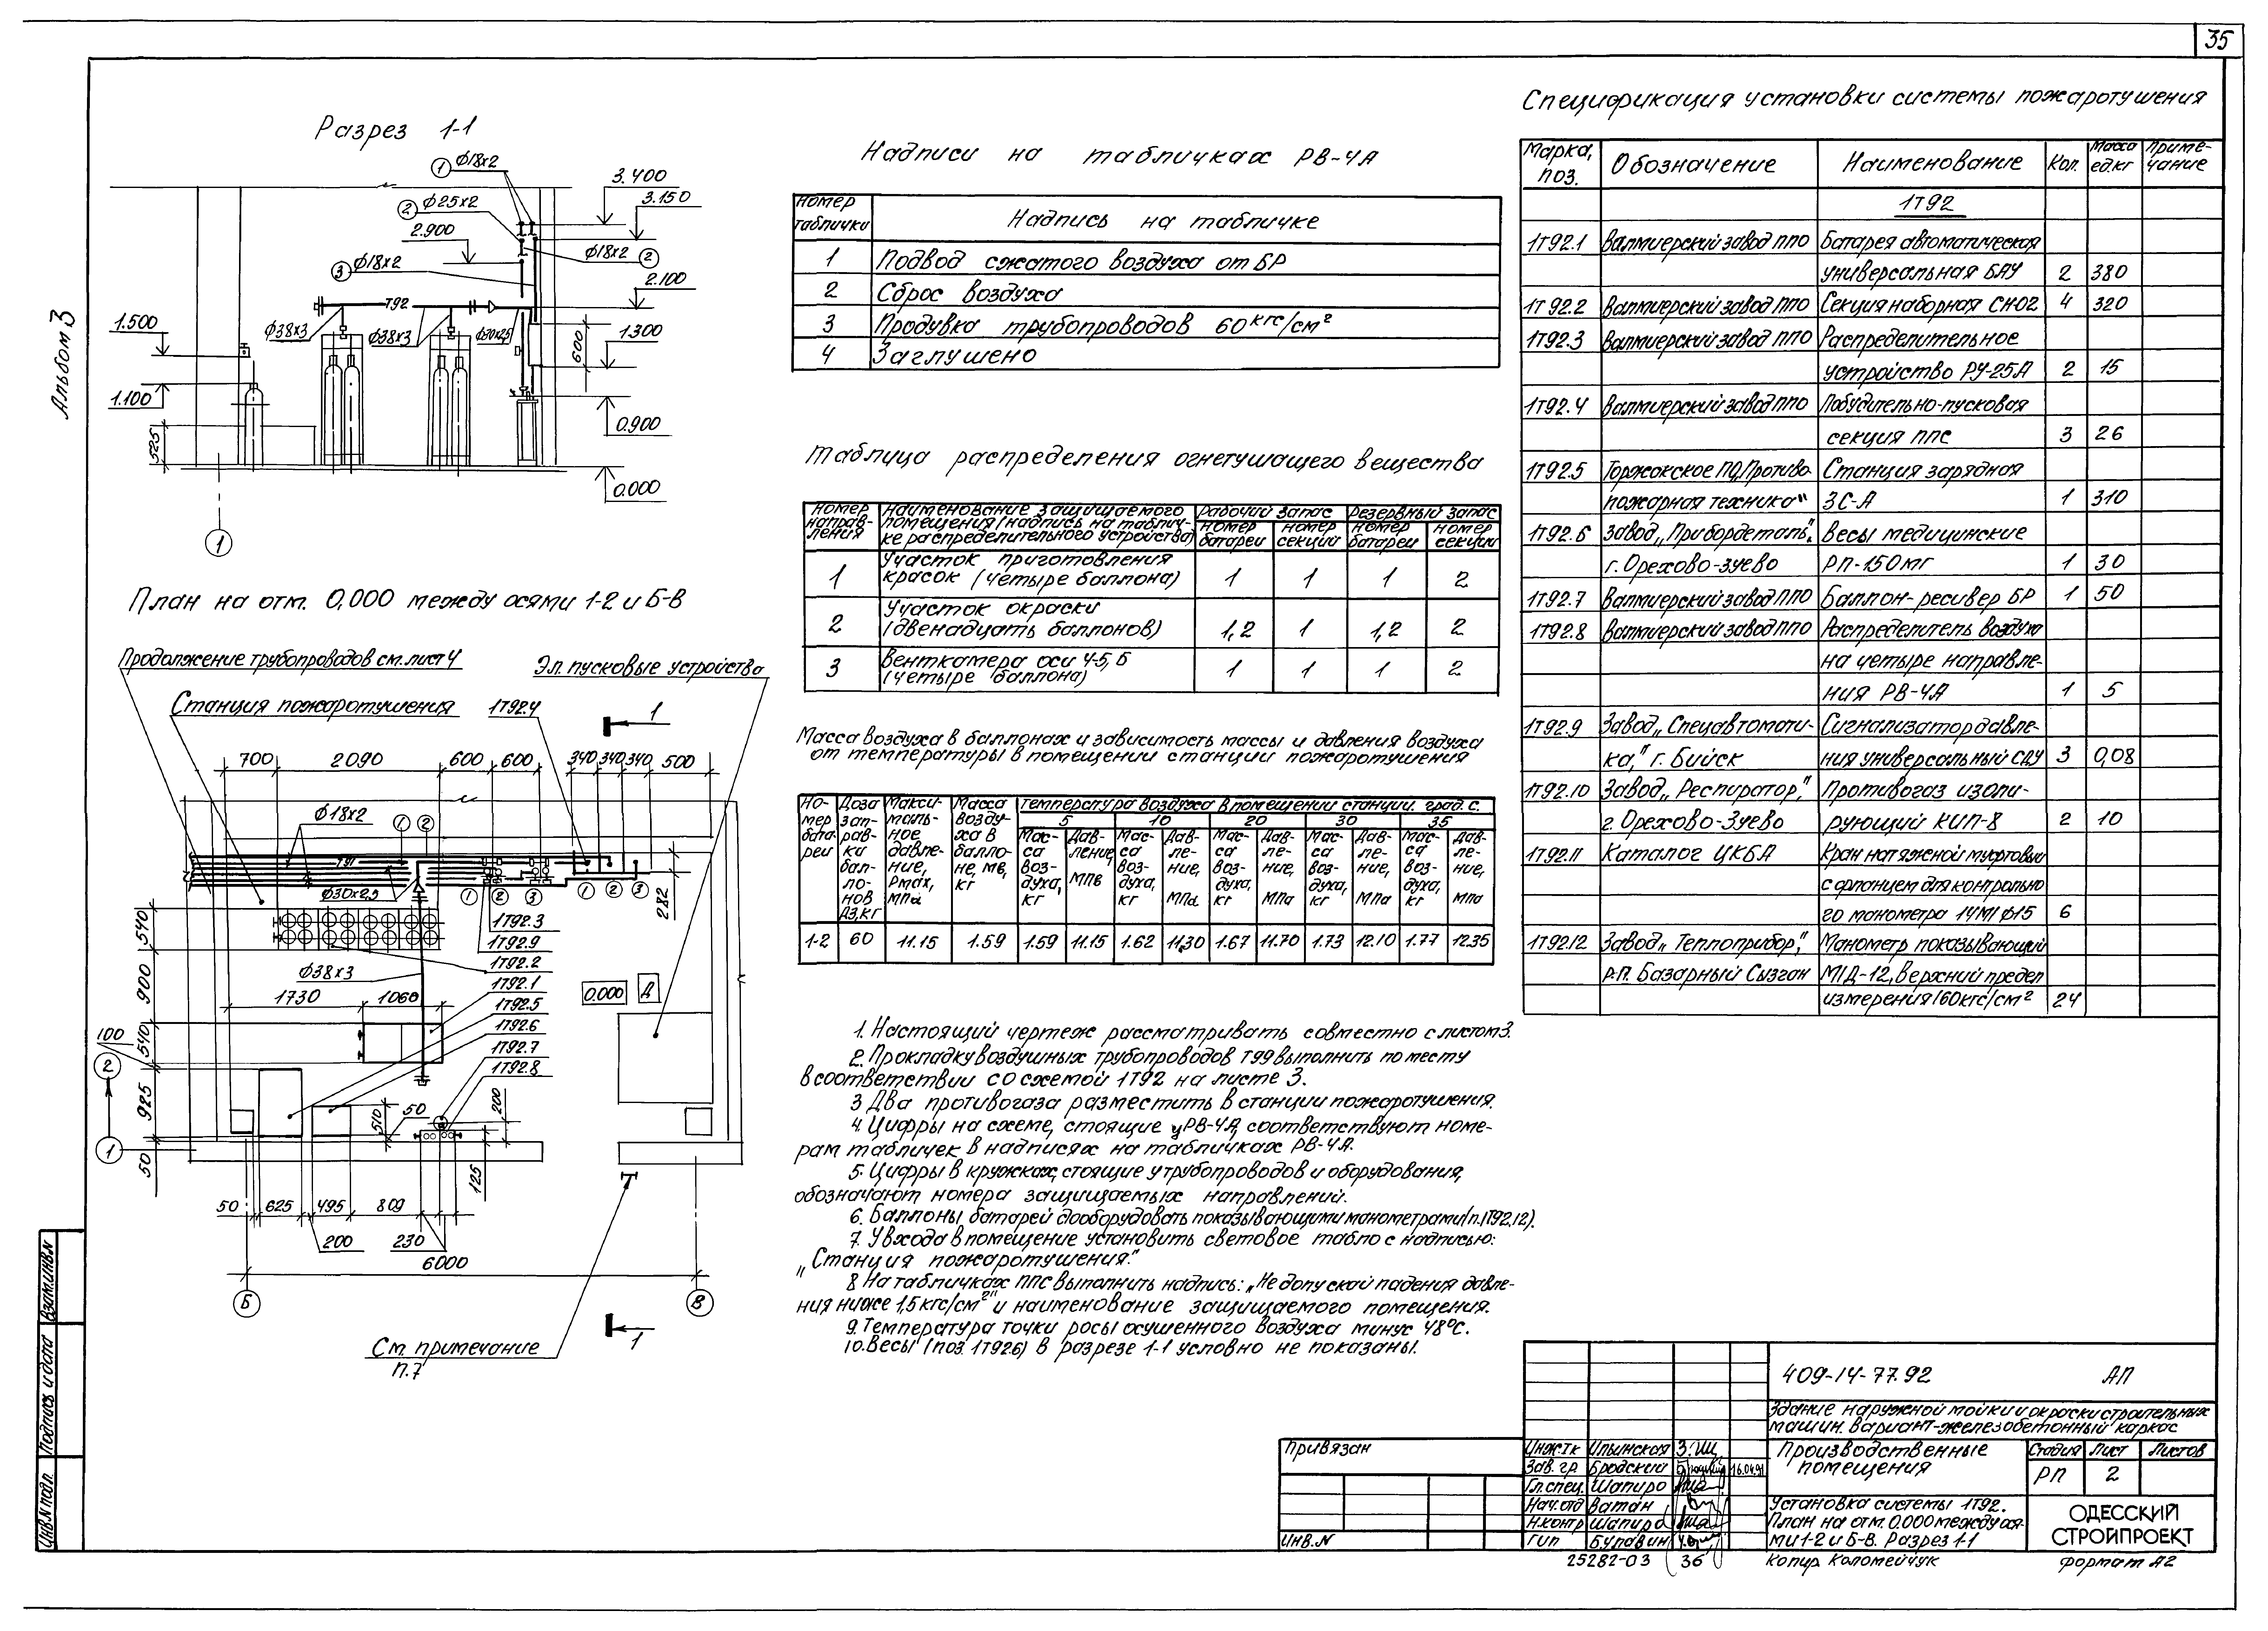 35
Альбом 3
Разрез 1-1
① Ф18х2
② Ф25х2
2.900
③ Ф18х2
Ф18х2 ②
3.400
3.150
2.100
Т92
Ф38х3
Ф38х3
1.500
1.100
525
600
1.300
0.900
0.000
1
План на отм. 0,000 между осями 1-2 и Б-В
Продолжение трубопроводов см. лист 4
Эл. пусковые устройства
Станция пожаротушения
1Т92.4
1
700 2090 600 600 340 340 340 500
Ф18х2
1 2
Т91
Ф30х2,5
1 2 3
1 2 3
282
540
1Т92.3
1Т92.9
1Т92.2
Ф38х3
1Т92.1
900
1730 1060
1Т92.5
0.000 Д
1Т92.6
100
540
1Т92.7
1Т92.8
2
925
510
50
200
1
50
125
50 625 495 809
200 230
6000
Б В
См. примечание
п.7
1
Надписи на табличках РВ-4А
Номер таблички
Надпись на табличке
1 Подвод сжатого воздуха от БР
2 Сброс воздуха
3 Продувка трубопроводов 60 кгс/см²
4 Заглушено
Таблица распределения огнетушащего вещества
Номер направления
Наименование защищаемого
помещения (надпись на таблич-
ке распределительного устройства)
Рабочий запас
Резервный запас
номер батареи
номер секций
номер батареи
номер секции
1 Участок приготовления
красок (четыре баллона) 1 1 1 2
2 Участок окраски
(двенадцать баллонов) 1,2 1 1,2 2
3 Венткамера оси 4-5, Б
(четыре баллона) 1 1 1 2
Масса воздуха в баллонах и зависимость массы и давления воздуха
от температуры в помещении станции пожаротушения
Но-
мер
бата-
реи
Доза
зап-
рав-
ки
бал-
ло-
нов
Дз, кг
Макси-
маль-
ное
давле-
ние,
Рмах,
МПа
Масса
возду-
ха в
балло-
не, Мв,
кг
Температура воздуха в помещении станции. град. с.
5 10 20 30 35
Мас-
са
воз-
духа,
кг
Дав-
ление,
МПа
Мас-
са
воз-
духа,
кг
Дав-
ле-
ние,
МПа
Мас-
са
воз-
духа,
кг
Дав-
ле-
ние,
МПа
Мас-
са
воз-
духа,
кг
Дав-
ле-
ние,
МПа
Мас-
са
воз-
духа,
кг
Дав-
ле-
ние,
МПа
1-2 60 11.15 1.59 1.59 11.15 1.62 11.30 1.67 11.70 1.73 12.10 1.77 12.35
1. Настоящий чертеж рассматривать совместно с листом 3.
2. Прокладку воздушных трубопроводов Т99 выполнить по месту
в соответствии со схемой 1Т92 на листе 3.
3 Два противогаза разместить в станции пожаротушения.
4. Цифры на схеме, стоящие у РВ-4А, соответствуют номе-
рам табличек в надписях на табличках РВ-4А.
5. Цифры в кружках, стоящие у трубопроводов и оборудования,
обозначают номера защищаемых направлений.
6. Баллоны батарей дооборудовать показывающими манометрами (п.1Т92.12).
7. У входа в помещение установить световое табло с надписью:
„Станция пожаротушения".
8 На табличках ППС выполнить надпись: „Не допускай падения давле-
ния ниже 1,5 кгс/см²" и наименование защищаемого помещения.
9. Температура точки росы осушенного воздуха минус 48°С.
10. Весы (поз. 1Т92.6) в разрезе 1-1 условно не показаны.
Спецификация установки системы пожаротушения
Марка, поз. Обозначение Наименование Кол. Масса ед.кг Приме-чание
1Т92
1Т92.1 Валмиерский завод ППО Батарея автоматическая
универсальная БАУ 2 380
1Т92.2 Валмиерский завод ППО Секция наборная СН-02 4 320
1Т92.3 Валмиерский завод ППО Распределительное
устройство РУ-25А 2 15
1Т92.4 Валмиерский завод ППО Побудительно-пусковая
секция ППС 3 26
1Т92.5 Торжокское ПО„Противо- Станция зарядная
пожарная техника" ЗС-А 1 310
1Т92.6 Завод „Прибордеталь", Весы медицинские
г. Орехово-Зуево РП-150мг 1 30
1Т92.7 Валмиерский завод ППО Баллон-ресивер БР 1 50
1Т92.8 Валмиерский завод ППО Распределитель воздуха
на четыре направле-
ния РВ-4А 1 5
1Т92.9 Завод „Спецавтомати- Сигнализатор давле-
ка," г. Бийск ния универсальный СДУ 3 0,08
1Т92.10 Завод „Респиратор," Противогаз изоли-
г. Орехово-Зуево рующий КИП-8 2 10
1Т92.11 Каталог ЦКБА Кран натяжной муфтовый
с фланцем для контрольно
го манометра 14М1 Ф15 6
1Т92.12 Завод „Теплоприбор," Манометр показывающий
р.п. Базарный Сызган МТД-12, верхний предел
измерения 160кгс/см² 24
409-14-77.92 АП
Здание наружной мойки и окраски строительных
машин. Вариант-железобетонный каркас
Производственные
помещения
Стадия Лист Листов
РП 2
Установка системы 1Т92.
План на отм. 0.000 между ося-
ми 1-2 и Б-В. Разрез 1-1
ОДЕССКИЙ
СТРОЙПРОЕКТ
Инж.тк Ильинская
Зав. гр Бродский 16.04.91
Гл.спец. Шапиро
Нач.отд Ватан
Н.контр Шапиро
ГИП Булавин
Привязан
Инв.N
25282-03 36
Копир Коломейчук
Формат А2
Инв.N подл. Подпись и дата Взам.инв.N